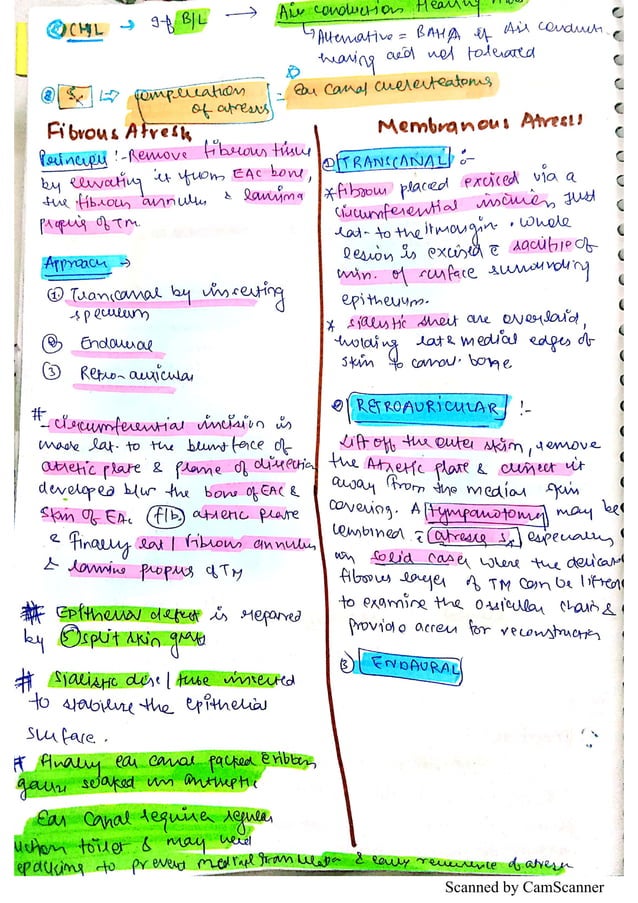 ② CHL → If B/L → Air conduction Hearing
↳ Alternative = BAHA if Air conduct.
hearing aid not tolerated
② Sx ⇒ complication of atresia = ear canal
Fibrous Atresia
Principle :- Remove fibrous tissue
by elevating it from EAC bone,
the fibrous annulus & lamina
propria of TM
Approach →
① Transcanal by inserting
speculum
② Endaural
③ Retro-auricular
# circumferential incision is
made lat. to the blunt face of
atretic plate & plane of dissection
developed b/w the bone of EAC &
skin of EAC f/b. atretic plate
& finally lat / fibrous annulus
& lamina propria of TM
# Epithelial defect is repaired
by split skin graft
# Sialistic disc / tube inserted
to stabilise the epithelial
surface.
# Finally ear canal packed c ribbon
gauze soaked in antiseptic
Ear Canal require regular
suction toilet & may need
repacking to prevent medial granulation & early recurrence of atresia
Membranous Atresia
① TRANSCANAL :-
* fibrous placed excised via a
circumferential incision, Just
lat. to the margin. Whole
lesion is excised c sacrifice of
min. of surface surrounding
epithelium.
* sialistic sheet are overlaid,
holding lat & medial edges of
skin to canal bone
② RETROAURICULAR :-
Lift off the outer skin, remove
the Atretic plate & dissect it
away from the medial skin
covering. A tympanotomy may be
combined c atresia Sx, especially
in solid cases where the delicate
fibrous layer of TM can be lifted
to examine the ossicular chain &
provide access for reconstruction
③ ENDAURAL
Scanned by CamScanner